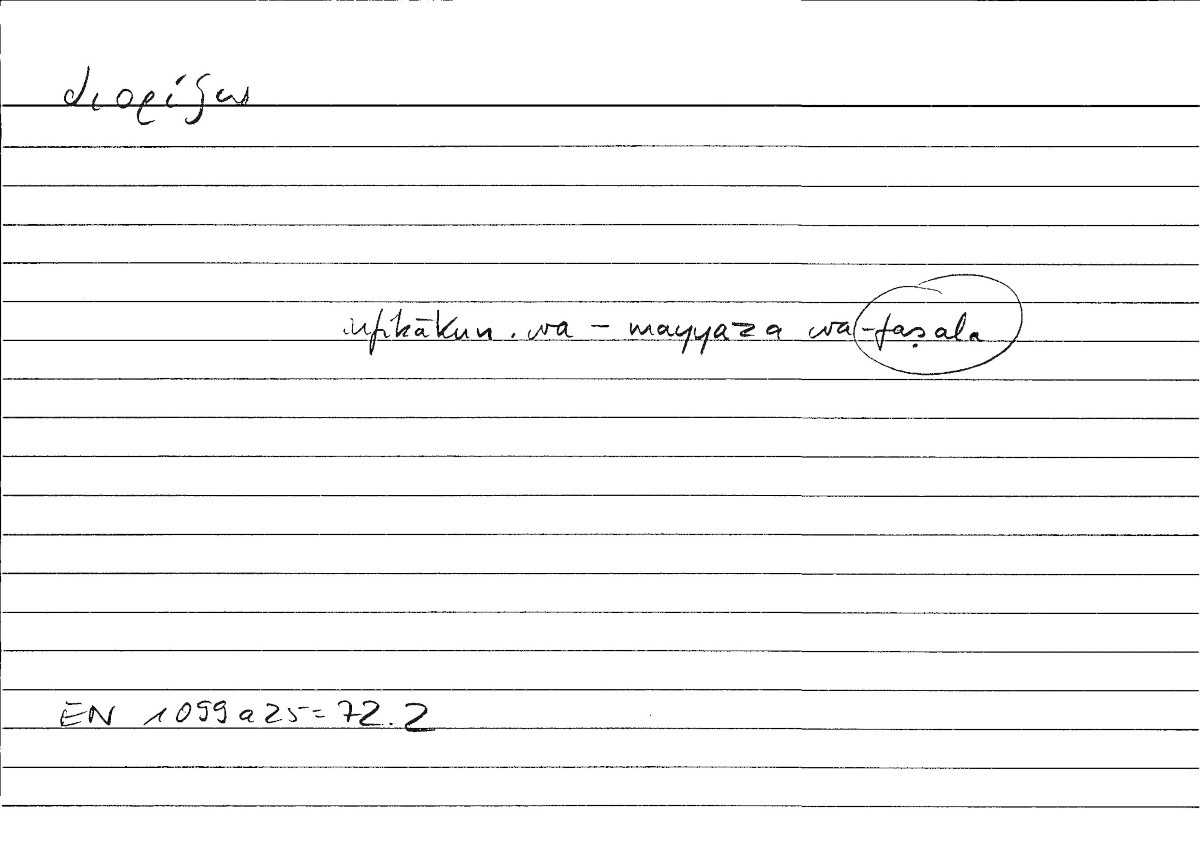 διορίζω
infikākun . wa – mayyaza wa-faṣala
EN 1099a25=72.2